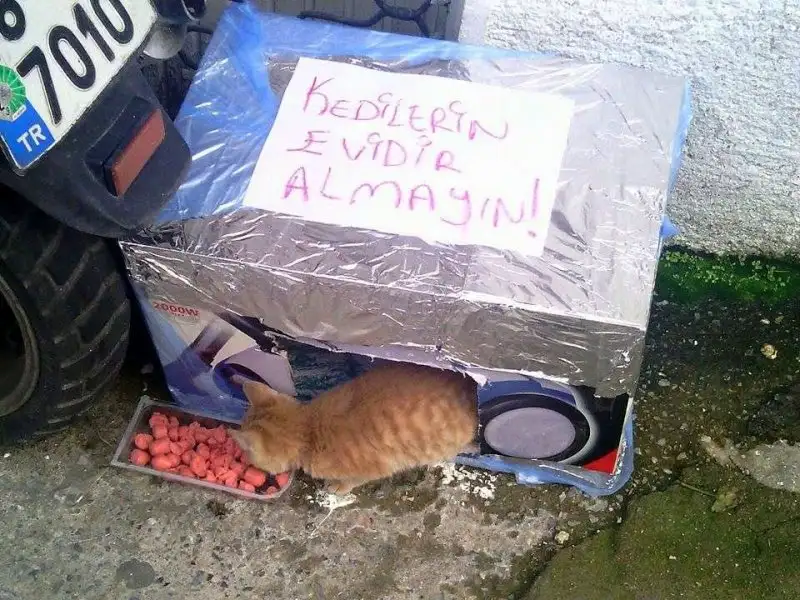 8
7010
TR
KEDİLERİN
EVİDİR
ALMAYIN!
2000W